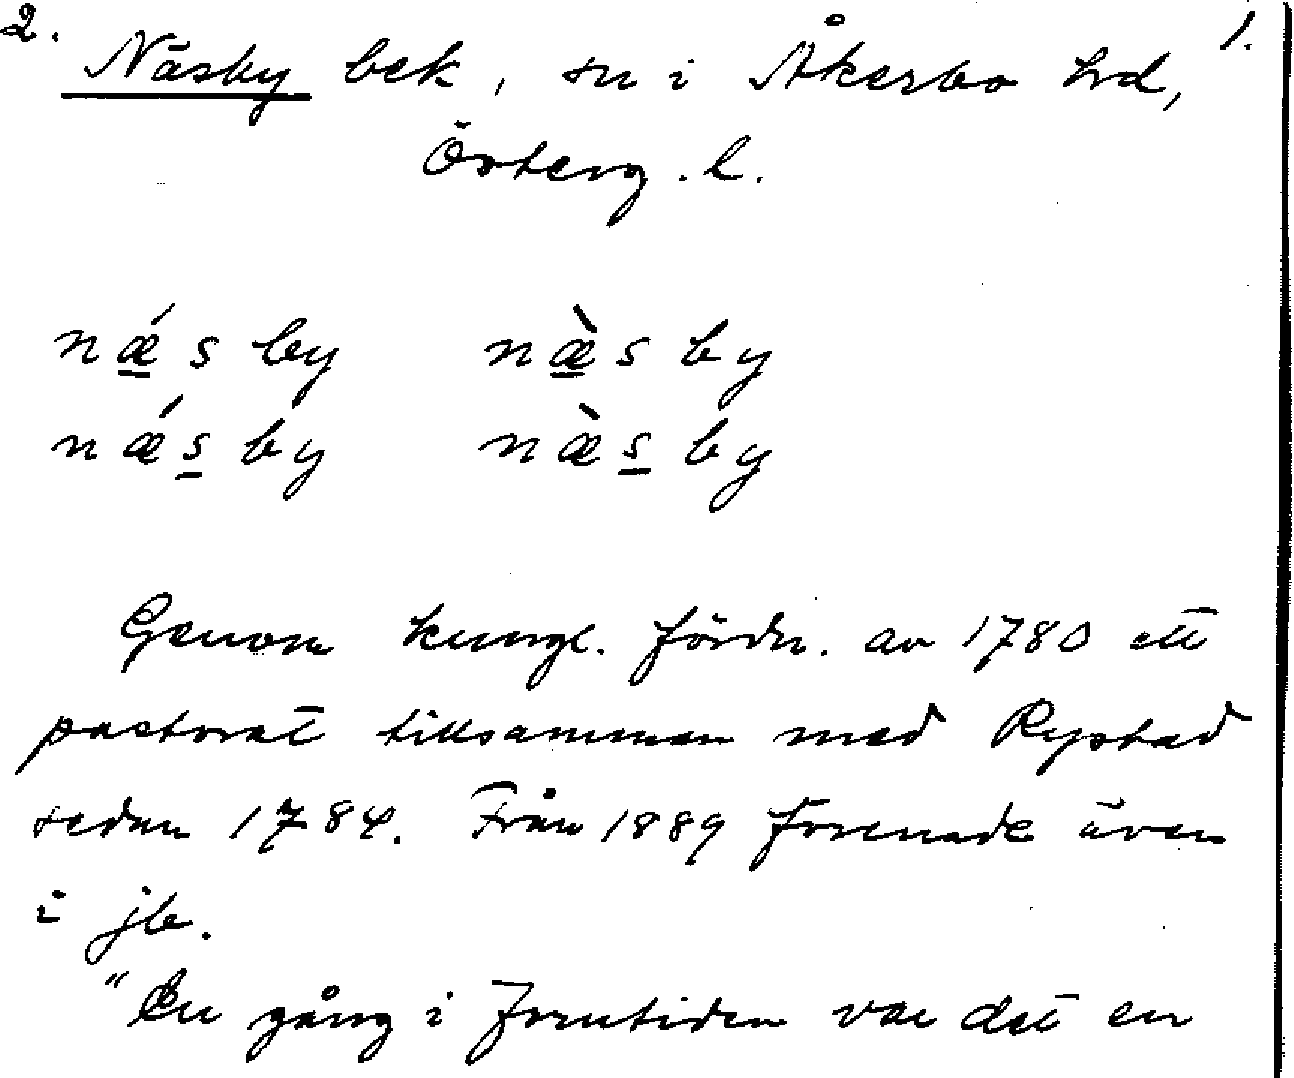 2. 1.
Näsby bek, sn i Åkerbo hd,
Österg. l.
nǽsby næ̀sby
nǽsby næ̀sby
Genom kungl. fördn. av 1780 ett
pastorat tillsamman med Rystad
sedan 1784. Från 1889 förenade även
i jb.
"En gång i forntiden var det en